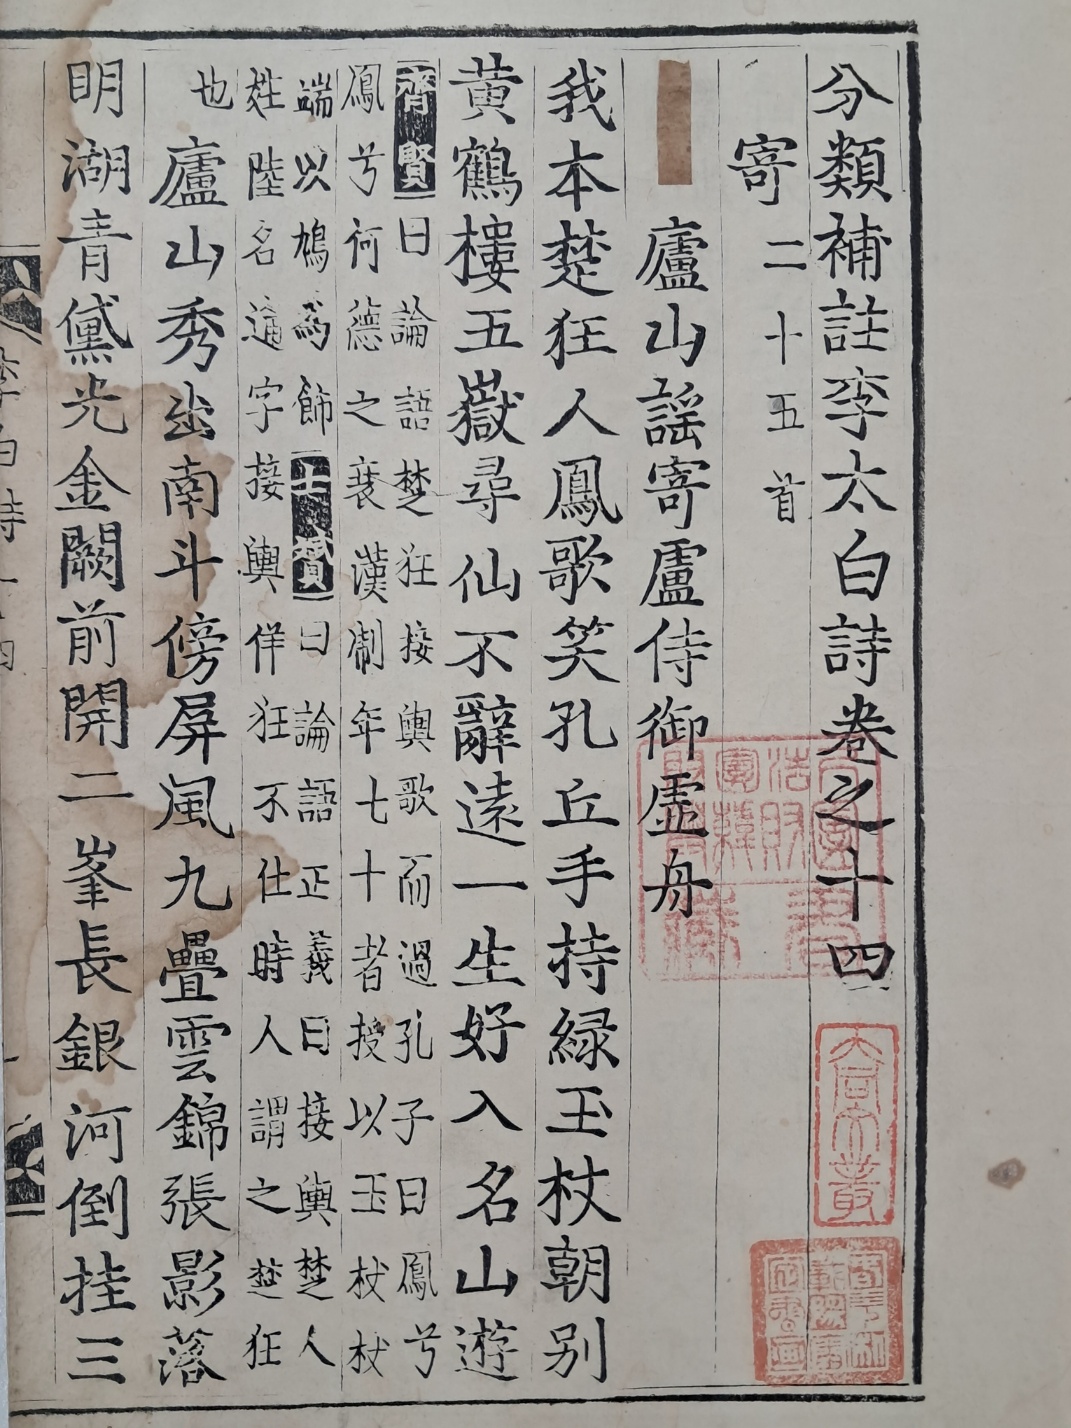 分類補註李太白詩卷之十四
寄二十五首
廬山謡寄盧侍御虛舟
我本楚狂人鳳歌笑孔丘手持緑玉杖朝别
黄鶴樓五嶽尋仙不辭逺一生好入名山遊
齊賢曰論語楚狂接輿歌而過孔子曰鳳兮
鳳兮何德之衰漢制年七十者授以玉杖杖
端以鳩爲飾士贇曰論語正義曰接輿楚人
姓陸名通字接輿佯狂不仕時人謂之楚狂
也廬山秀出南斗傍屏風九疊雲錦張影落
明湖青黛光金闕前開二峯長銀河倒挂三